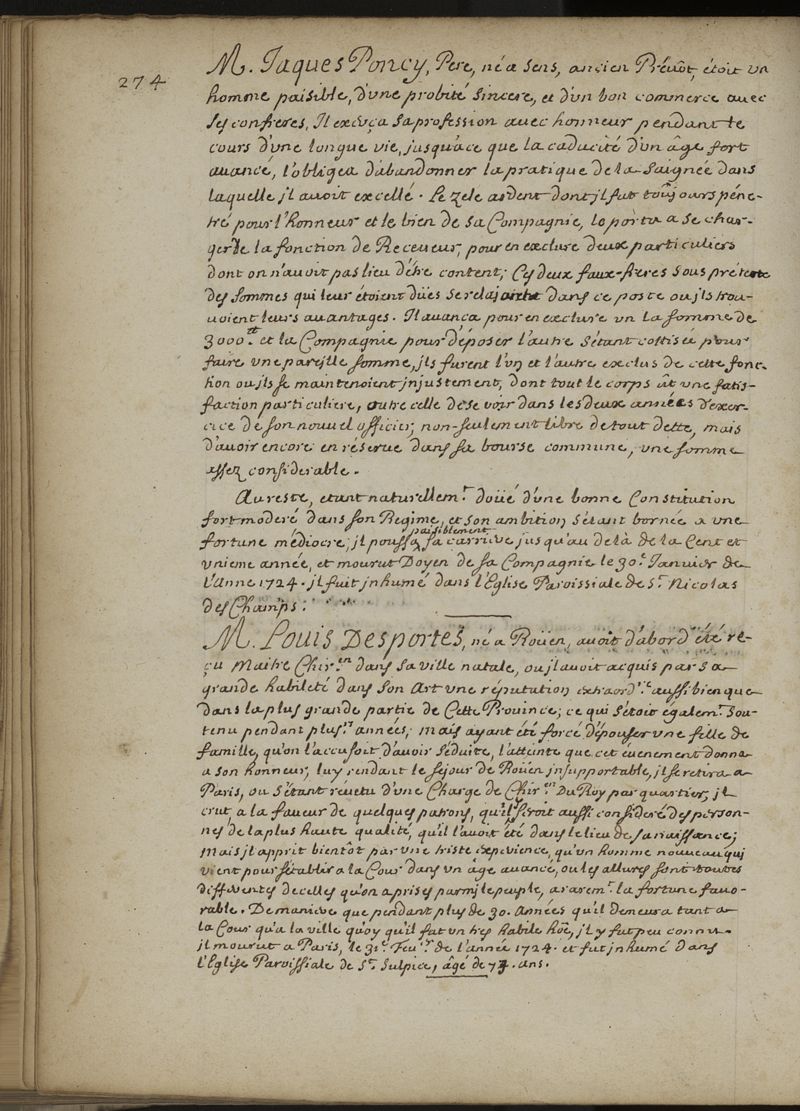 274
M. Jaques Poncy, Pere, né a Sens, ancien Prévôt, étoit un
homme paisible, d'une probité sincere, et d'un bon commerce avec
ses confreres, Il exerça sa profession avec honneur pendant le
cours d'une longue vie, jusqu'à ce que la caducité d'un âge fort
avancé, l'obligea d'abandonner la pratique de la Saignée dans
laquelle jl avoit excellé. Le zele ardent dont jl fut toûjours péne-
tré pour l'honneur et le bien de Sa Compagnie, le porta a se char-
ger de la fonction de Receveur, pour en exclure deux particuliers
dont on n'avoit pas lieu d'être content; Ces deux faux-freres sous prétexte
des sommes qui leur étoient dües se dans ce poste ou jls trou-
voient leurs avantages. Il avança pour en exclure un la somme de
3000.tt et la Compagnie pour déposer l'autre s'étant cottisée pour
faire une pareille somme, jls furent l'un et l'autre exclus de cette fonc-
tion ou jls se maintenoient jnjustement, dont tout le corps eût une satis-
faction particuliere, outre celle de se voir dans les deux années d'exer-
cice de son nouvel officier, non-seulement libre de tout dette, mais
d'avoir encore en reserve dans sa bourse commune, une somme
assez considerable.
Au reste, etant naturellem.t doüé d'une bonne Constitution
fort moderé dans son Regime, et son ambition s'étant bornée a une
fortune médiocre, jl poussa paisiblement sa carriere jusqu'au dela de la Cent et
unieme année, et mourut Doyen de sa Compagnie le 30.e Janvier de
l'Anne 1724. jl fut jnhumé dans l'Eglise Paroissiale de S.t Nicolas
des Champs.
M. Louis Desportes, né a Roüen, avoit d'abord été re-
çu Maitre Chir.en dans sa ville natale, ou jl avoit acquis par sa
grande habileté dans son Art une réputation extraord.re aussi bien que
dans la plus grande partie de Cette Province; ce qui s'étoit égalem.t sou-
tenu pendant plus.rs années, mais ayant été forcé d'épouser une fille de
famille, qu'on l'accusoit d'avoir séduite, l'atteinte que cet évenement donna
a son honneur, luy rendant le séjour de Roüen jnsupportable, jl se retira a
Paris, ou s'étant revetu d'une Charge de Chir.en Du Roy par quartier, jl
crut, a la faveur de quelques patrons, qu'il seroit aussi consideré des person-
nes de la plus haute qualité, qu'il l'avoit été dans le lieu de sa naissance;
Mais jl apprit bientôt par une triste experience, qu'un homme nouveau qui
vient pour s'établir a la Cour dans un âge avancé, ou les allures sont toutes
differentes de celles qu'on a prises parmj le peuple, a rarem.t la fortune favo-
rable. De maniere que pendant plus de 30. Années qu'il demeura tant a
la Cour qu'a la ville quoy qu'il fut un tres habile hoe, jl y fut peu connu.
jl mourut a Paris, le 3.e Feu.er de l'année 1724. et fut jnhumé Dans
l'Eglise Paroissiale de S.t Sulpice, âgé de 74. ans.